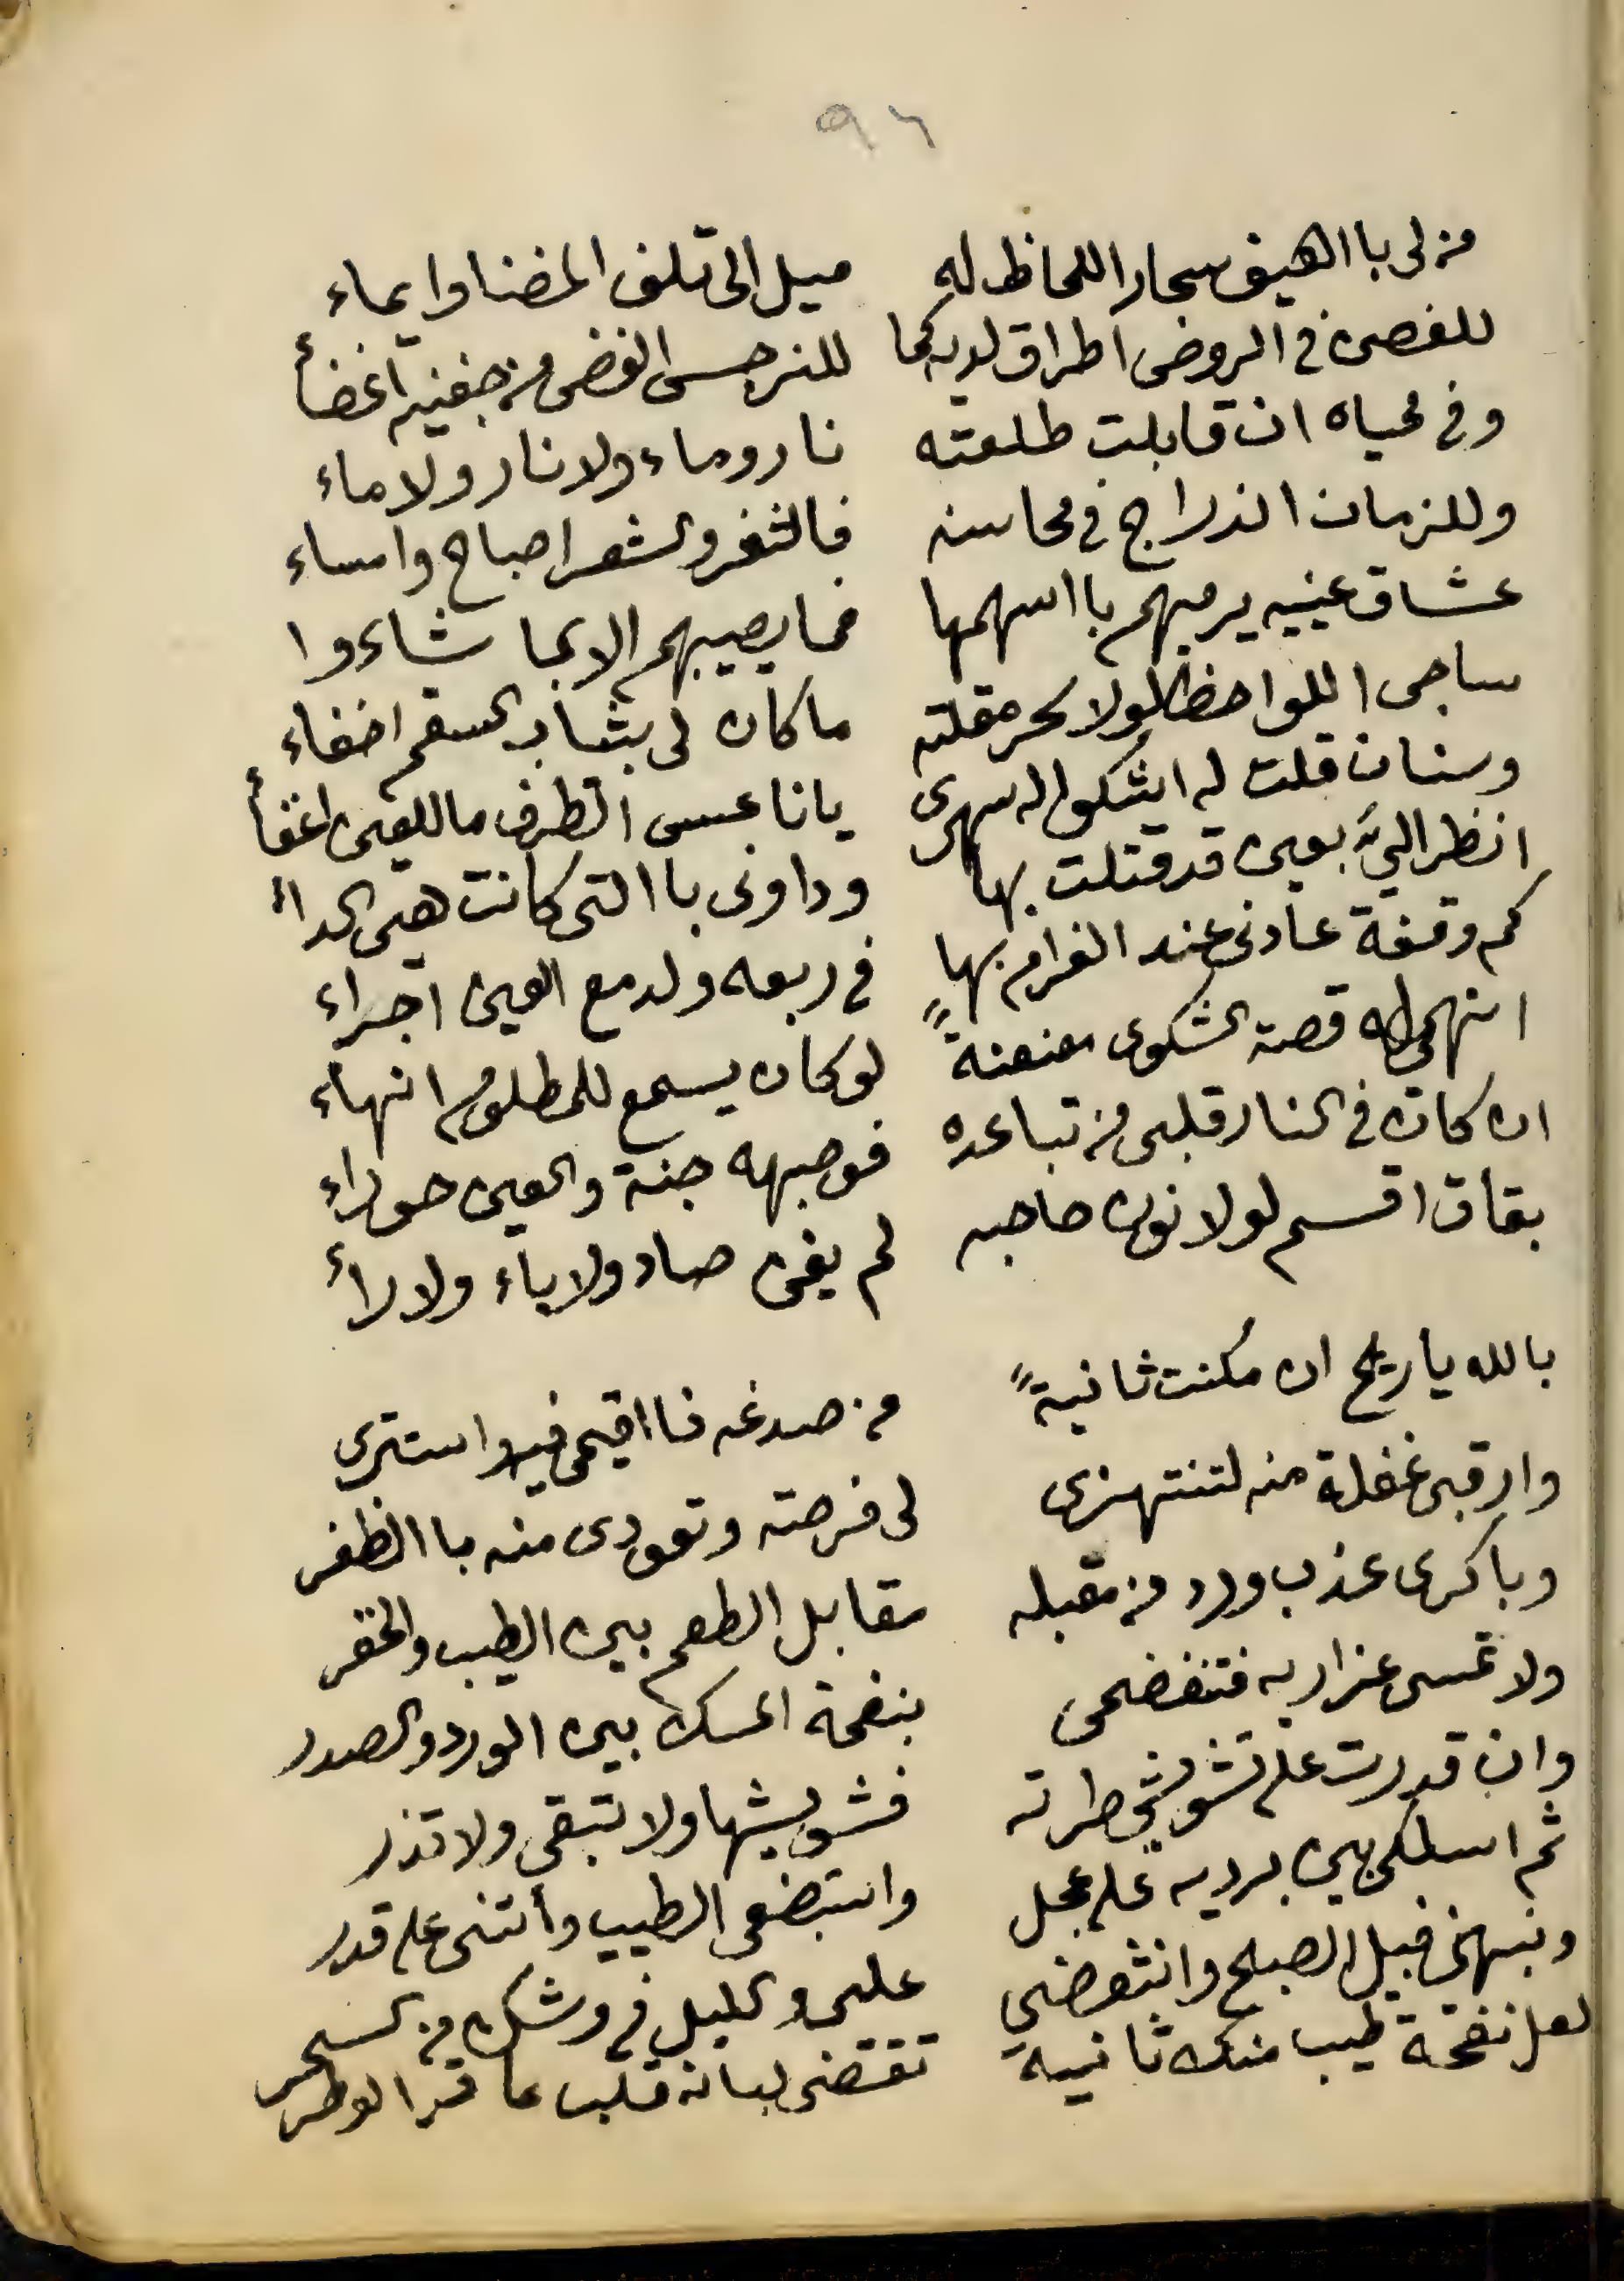 ٩٦
من لى باالهيف سحار اللحاظ له ميل الى تلف المضنا وايماء
للغصن فى الروض اطراق لديه كما للنرجس الغض من جفنيه اغضأ
وفى محياه ان قابلت طلعته نار وماء ولا نار ولا ماء
وللزمان اندراج فى محاسنه فالثغر والشعر اصباح وامساء
عشاق عينيه يرميهم باسهمها فما يصيبهم الا بما شاءوا
ساجى اللواحظ لولا سحر مقلته ما كان لى بثياب السقم اخفاء
وسنان قلت له ايشكوا له سهرى يا ناعس الطرف ما للعين اغفأ
انظر الىّ بعين قد قتلت بها وداونى باالتى كانت هى الدأ
كم وقفة عادنى عند الغرام بها فى ربعه ولدمع العين اجراء
انهى له قصة الشكوى معنعنةً لو كان يسمع للمظلوم انهاء
ان كان فى النار قلبى من تباعده فوجهه جنة والعين حوراء
بقاف اقسم لولا نون حاجبه لم يغن صاد ولا ياء ولا رأ
بالله يا ريح ان مُكنت ثانيةً من صدغه فااقيمى فيه واستترى
وارقبى غفلة منه لتنتهزى لى فرصته وتعودى منه باالظفر
وباكرى عذب ورد من مقبله مقابل الطعم بين الطيب والخفر
ولا تمسى عذاريه فتفضحى بنفحة المسك بين الورد والصدر
وان قدرت على تشويش طرته فشويشها ولا تبقى ولا تذر
ثم اسلكى بين برديه على عجل واستبضعى الطيب وأتنى على قدر
ونبهنى قبل الصبح وانتفضي على والليل فى وشك من السحر
لعل نفحة طيب منك ثانية تقتضى لبانة قلب عاقر الوطر